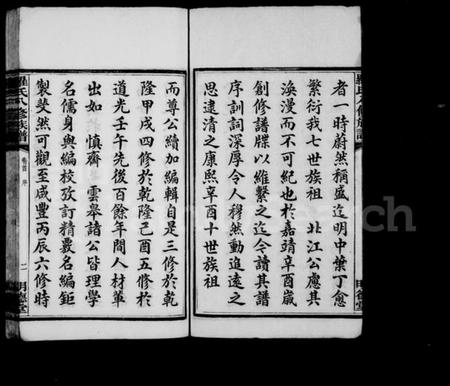 者一時蔚然稱盛迄明中葉丁愈
繁衍我七世族祖 北江公應其
渙漫而不可紀也於嘉靖辛酉歲
創修譜牒以維繫之迄今讀其譜
序訓詞深厚令人穆然動追遠之
思逮清之康熙辛酉十世族祖
而尊公續加編輯自是三修於乾
隆甲戌四修於乾隆己酉五修於
道光壬午先後百餘年間人材蔚
出如 慎齋 雲舉諸公皆理學
名儒身與編校攷訂精覈名編鉅
製斐然可觀至咸豐丙辰六修時
羅氏八修族譜
卷首 序
二 明德堂